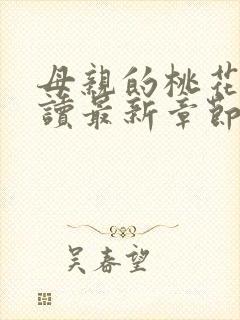 母親的桃花
讀最新章節
吴春望